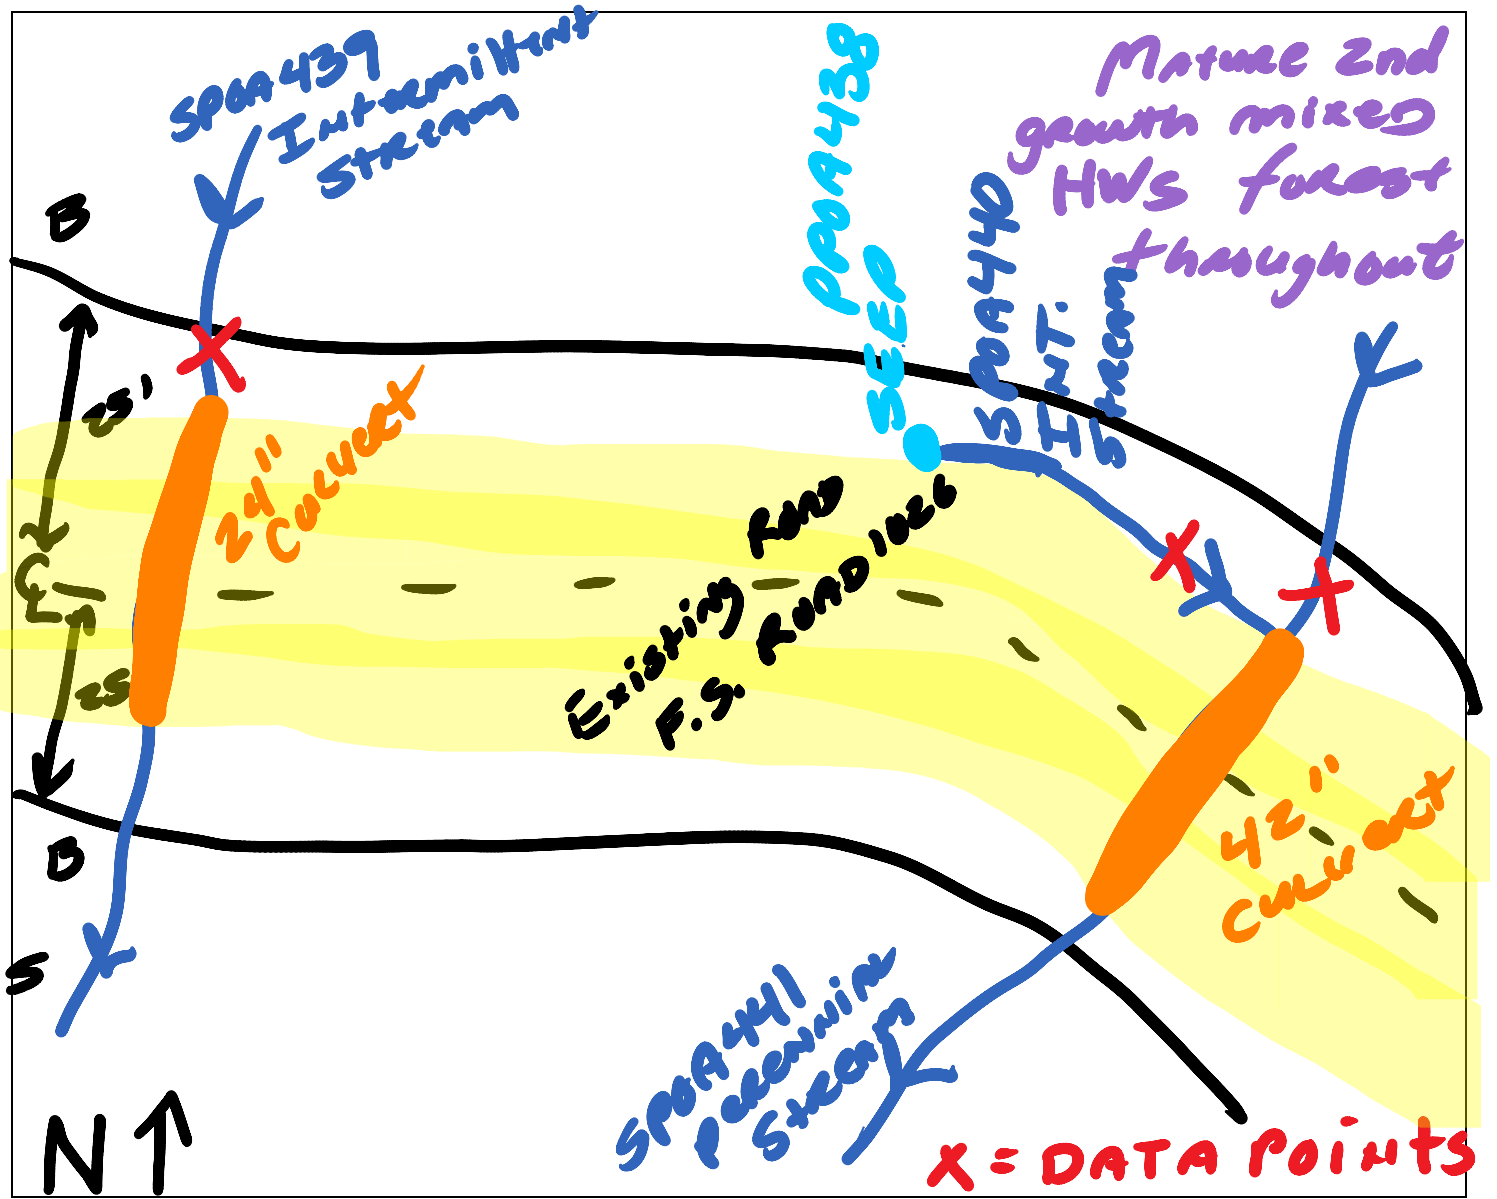 SPOA439
Intermittent
Stream
PPOA438
SEEP
SPOA440
INT.
Stream
Mature 2nd
growth mixed
HWS forest
throughout
B
25'
24"
Culvert
CL
25'
Existing Rd
F.S. ROAD 1026
42"
Culvert
B
S
SPOA441
perennial
Stream
N
X = DATA POINTS